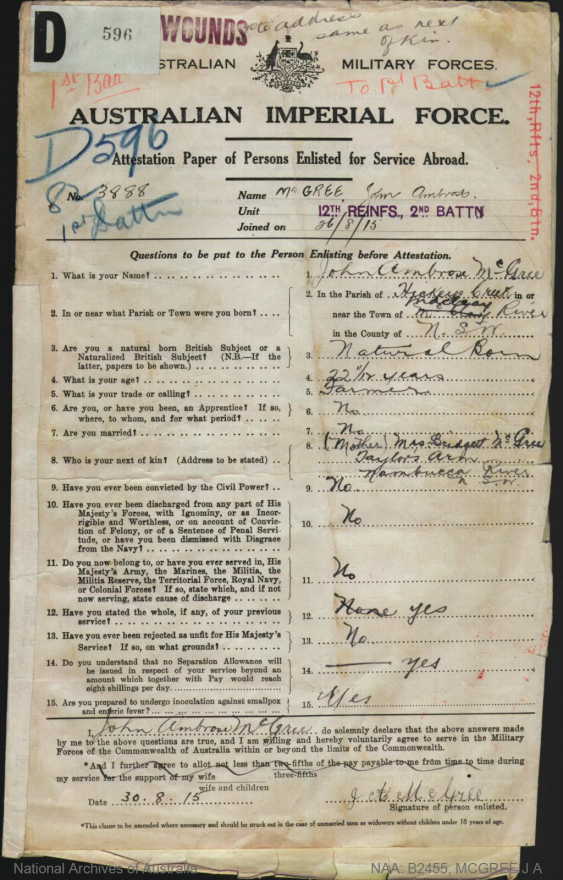 D 596 WOUNDS
address
same as next
of Kin.
AUSTRALIAN MILITARY FORCES.
1st Batt To 1st Batt
AUSTRALIAN IMPERIAL FORCE.
12th, Rfts, 2nd, Btn.
D596
Attestation Paper of Persons Enlisted for Service Abroad.
No. 3888 Name McGREE John Ambrose.
1st Battn Unit 12TH REINFS., 2ND BATTN
Joined on 26/8/15
Questions to be put to the Person Enlisting before Attestation.
1. What is your Name? 1. John Ambrose McGree
2. In or near what Parish or Town were you born? 2. In the Parish of Hickeys Creek in or
near the Town of Macleay River
in the County of N.S.W
3. Are you a natural born British Subject or a
Naturalized British Subject? (N.B.—If the
latter, papers to be shown.) 3. Natural Born
4. What is your age? 4. 22 years
5. What is your trade or calling? 5. Farmer
6. Are you, or have you been, an Apprentice? If so,
where, to whom, and for what period? 6. No
7. Are you married? 7. No
8. Who is your next of kin? (Address to be stated) 8. (Mother) Mrs. Bridgett McGree
Taylors Arm
Nambucca River
N.S.W.
9. Have you ever been convicted by the Civil Power? 9. No
10. Have you ever been discharged from any part of His
Majesty's Forces, with Ignominy, or as Incor-
rigible and Worthless, or on account of Convic-
tion of Felony, or of a Sentence of Penal Servi-
tude, or have you been dismissed with Disgrace
from the Navy? 10. No
11. Do you now belong to, or have you ever served in, His
Majesty's Army, the Marines, the Militia, the
Militia Reserve, the Territorial Force, Royal Navy,
or Colonial Forces? If so, state which, and if not
now serving, state cause of discharge 11. No
12. Have you stated the whole, if any, of your previous
service? 12. None yes
13. Have you ever been rejected as unfit for His Majesty's
Service? If so, on what grounds? 13. No
14. Do you understand that no Separation Allowance will
be issued in respect of your service beyond an
amount which together with Pay would reach
eight shillings per day. 14. yes
15. Are you prepared to undergo inoculation against smallpox
and enteric fever? 15. Yes
I, John Ambrose McGree do solemnly declare that the above answers made
by me to the above questions are true, and I am willing and hereby voluntarily agree to serve in the Military
Forces of the Commonwealth of Australia within or beyond the limits of the Commonwealth.
*And I further agree to allot not less than two-fifths of the pay payable to me from time to time during
three-fifths
my service for the support of my wife
wife and children
Date 30.8.15 J A McGree
Signature of person enlisted.
*This clause to be amended where necessary and should be struck out in the case of unmarried men or widowers without children under 18 years of age.
National Archives of Australia NAA: B2455, MCGREE J A